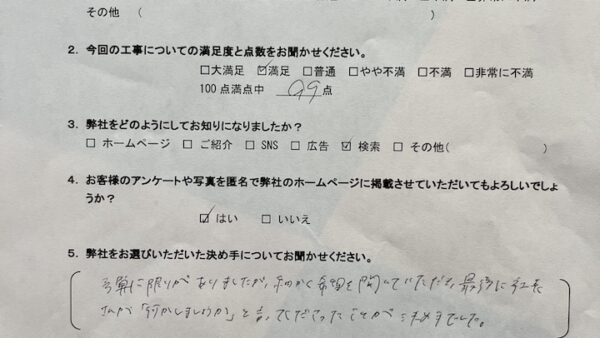 その他 （ ）
2. 今回の工事についての満足度と点数をお聞かせください。
□大満足 ☑満足 □普通 □やや不満 □不満 □非常に不満
100点満点中 99 点
3. 弊社をどのようにしてお知りになりましたか？
□ ホームページ □ ご紹介 □ SNS □ 広告 ☑ 検索 □ その他( )
4. お客様のアンケートや写真を匿名で弊社のホームページに掲載させていただいてもよろしいでしょ
うか？
☑ はい □ いいえ
5. 弊社をお選びいただいた決め手についてお聞かせください。
予算に限りがありましたが、細かく希望を聞いていただき、最後に社長
さんが「何とかしましょう」と言ってくださったことが決め手でした。